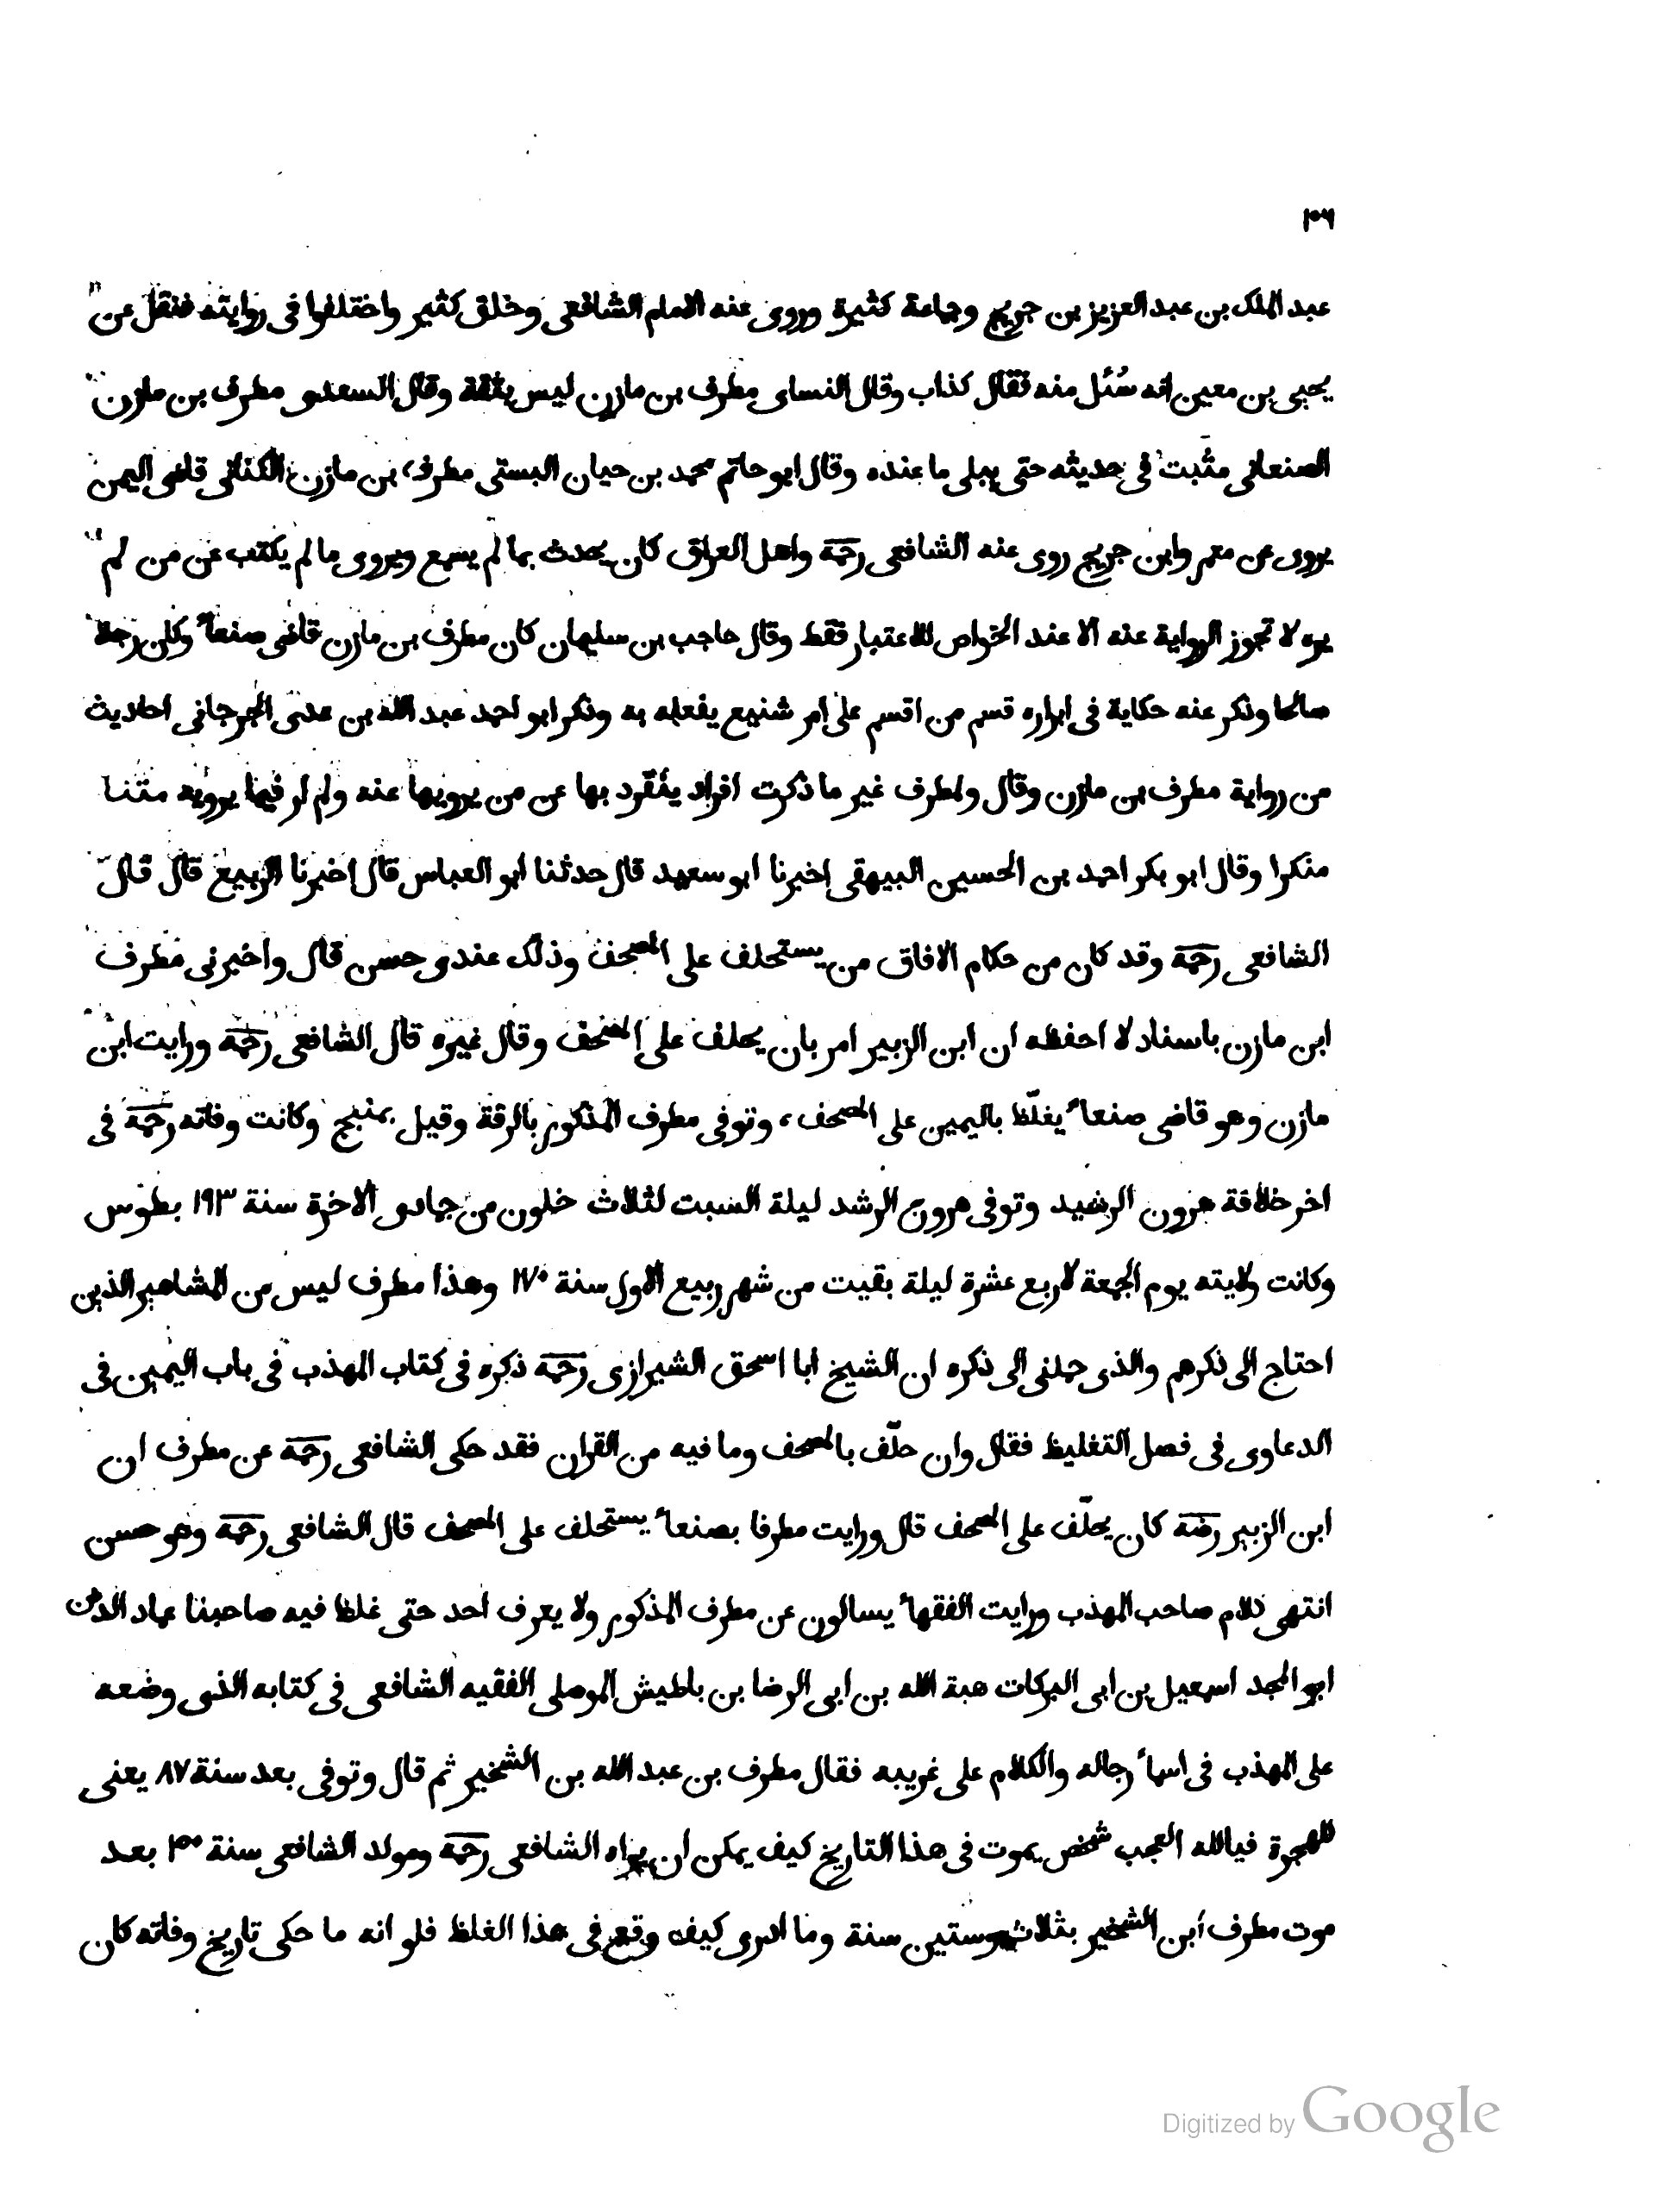 ١٠٦
عبد الملك بن عبد العزيز بن جريج وجماعة كثيرة وروى عنه الامام الشافعى وخلق كثير واختلفوا فى روايته فنقل عن
يحيى بن معين انه سُئل منه فقال كذاب وقال النساى مطرف بن مازن ليس بثقة وقال السعدى مطرف بن مازن
الصنعانى مثبت فى حديثه حتى يبلى ما عنده وقال ابو حاتم محمد بن حيان البستى مطرف بن مازن الكنانى قاضى اليمن
يروى عن معمر وابن جريج روى عنه الشافعى رحمه واهل العراق كان يحدث بما لم يسمع ويروى ما لم يكتب عن من لم
يره لا تجوز الرواية عنه الا عند الخواص للاعتبار فقط وقال حاجب بن سليمان كان مطرف بن مازن قاضى صنعاء وكان رجلا
صالحا وذكر عنه حكاية فى ابراره قسم من اقسم على امر شنيع يفعله به وذكر ابو احمد عبد الله بن عدى الجرجانى احاديث
من رواية مطرف بن مازن وقال ولمطرف غير ما ذكرت افراد يتفرد بها عن من يرويها عنه ولم ار فيما يرويه متنا
منكرا وقال ابو بكر احمد بن الحسين البيهقى اخبرنا ابو سعيد قال حدثنا ابو العباس قال اخبرنا الربيع قال قال
الشافعى رحمه وقد كان من حكام الافاق من يستحلف على المصحف وذلك عندى حسن قال واخبرنى مطرف
ابن مازن باسناد لا احفظه ان ابن الزبير امر بان يحلف على المصحف وقال غيره قال الشافعى رحمه ورايت ابن
مازن وهو قاضى صنعاء يغلّظ باليمين على المصحف، وتوفى مطرف المذكور بالرقة وقيل بمنبج وكانت وفاته رحمه فى
اخر خلافة هرون الرشيد وتوفى هرون الرشد ليلة السبت لثلاث خلون من جمادى الاخرة سنة ١٩٣ بطوس
وكانت ولايته يوم الجمعة لاربع عشرة ليلة بقيت من شهر ربيع الاول سنة ١٧٠ وهذا مطرف ليس من المشاهير الذين
احتاج الى ذكرهم والذى حملنى الى ذكره ان الشيخ ابا اسحق الشيرازى رحمه ذكره فى كتاب المهذب فى باب اليمين فى
الدعاوى فى فصل التغليظ فقال وان حلّف بالمصحف وما فيه من القران فقد حكى الشافعى رحمه عن مطرف ان
ابن الزبير رضه كان يحلّف على المصحف قال ورايت مطرفا بصنعاء يستحلف على المصحف قال الشافعى رحمه وهو حسن
انتهى كلام صاحب المهذب ورايت الفقهاء يسالون عن مطرف المذكور ولا يعرف احد حتى غلط فيه صاحبنا عماد الدين
ابو المجد اسمعيل بن ابى البركات هبة الله بن ابى الرضا بن باطيش الموصلى الفقيه الشافعى فى كتابه الذى وضعه
على المهذب فى اسماء رجاله والكلام على غريبه فقال مطرف بن عبد الله بن الشخير ثم قال وتوفى بعد سنة ٨٧ يعنى
للهجرة فيالله العجب شخص يموت فى هذا التاريخ كيف يمكن ان يراه الشافعى رحمه ومولد الشافعى سنة ١٥٠ بعد
موت مطرف ابن الشخير بثلاث وستين سنة وما ادرى كيف وقع فى هذا الغلط فلو انه ما حكى تاريخ وفاته كان
Digitized by Google